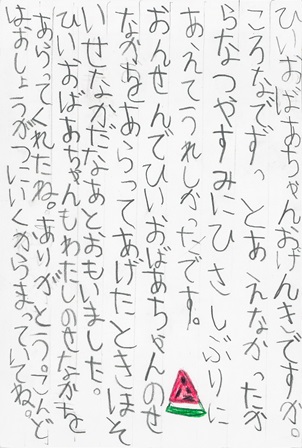 ひいおばあちゃんおげんきですか。
ころなでずっとあえなかったか
らなつやすみにひさしぶりに
あえてうれしかったです。
おんせんでひいおばあちゃんのせ
なかをあらってあげたときほそ
いせなかだなあとおもいました。
ひいおばあちゃんもわたしのせなかを
あらってくれたね。ありがとう。こんど
はおしょうがつにいくからまっていてね。